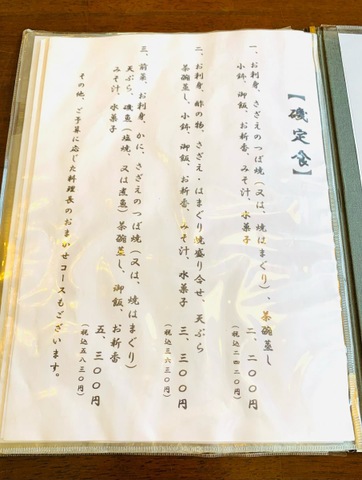 【磯定食】
一、お刺身、さざえのつぼ焼(又は、焼はまぐり)、茶碗蒸し
小鉢、御飯、お新香、みそ汁、水菓子
二、二〇〇円
(税込二四二〇円)
二、お刺身、酢の物、さざえ、はまぐり焼盛り合せ、天ぷら
茶碗蒸し、小鉢、御飯、お新香、みそ汁、水菓子
三、三〇〇円
(税込三六三〇円)
三、前菜、お刺身、かに、さざえのつぼ焼(又は、焼はまぐり)
天ぷら、磯魚(塩焼、又は煮魚)茶碗蒸し、御飯、お新香
みそ汁、水菓子
五、三〇〇円
(税込五八三〇円)
その他、ご予算に応じた料理長のおまかせコースもございます。